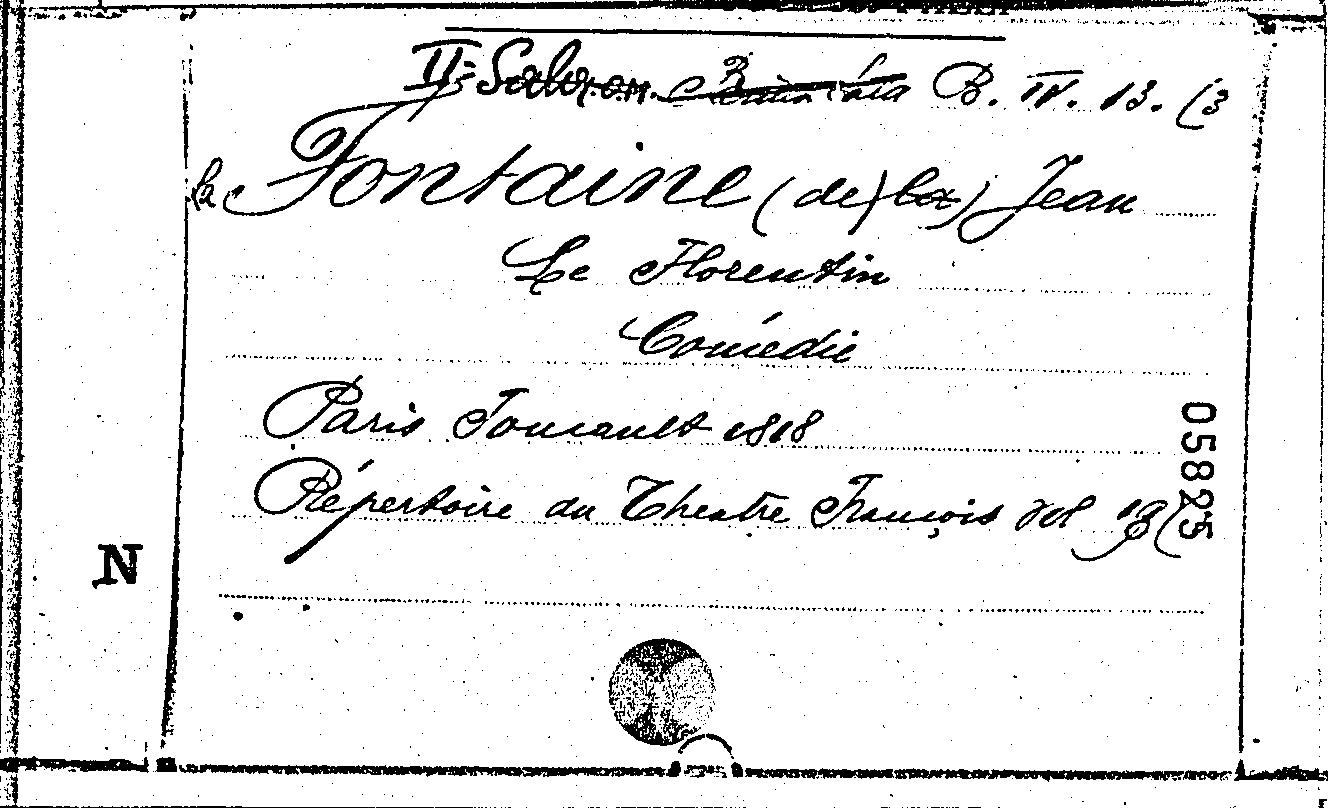 II: Salon. B. IV. 13. (3
la Fontaine (de) (la) Jean
Le Florentin
Comédie
Paris Foucault 1818
Répertoire du Theatre François vol 19(
05825
N